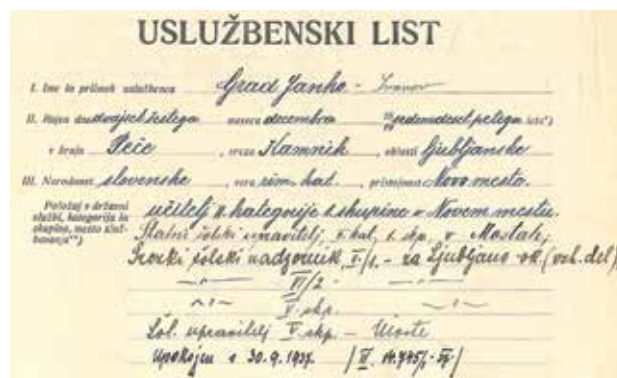 USLUŽBENSKI LIST
I. Ime in priimek uslužbenca Grad Janko - Ivanov
II. Rojen dne dvajset šestega meseca decembra sedemdeset petega
v kraju Peče, srezu Kamnik, oblasti Ljubljanske
III. Narodnost slovenske, vera rim. kat., pristojnost Novo mesto.
Položaj v državni službi, kategorija in skupina, mesto
učitelj II. kategorije 1. skupine v Novem mestu.
šolski upravitelj, kat., skp., v Mostah,
Sreski šolski nadzornik, za Ljubljano ok. (vzh. del)
VI/2
V. skp.
Šol. upravitelj V. skp. - Moste
Upokojen 30.9.1937.